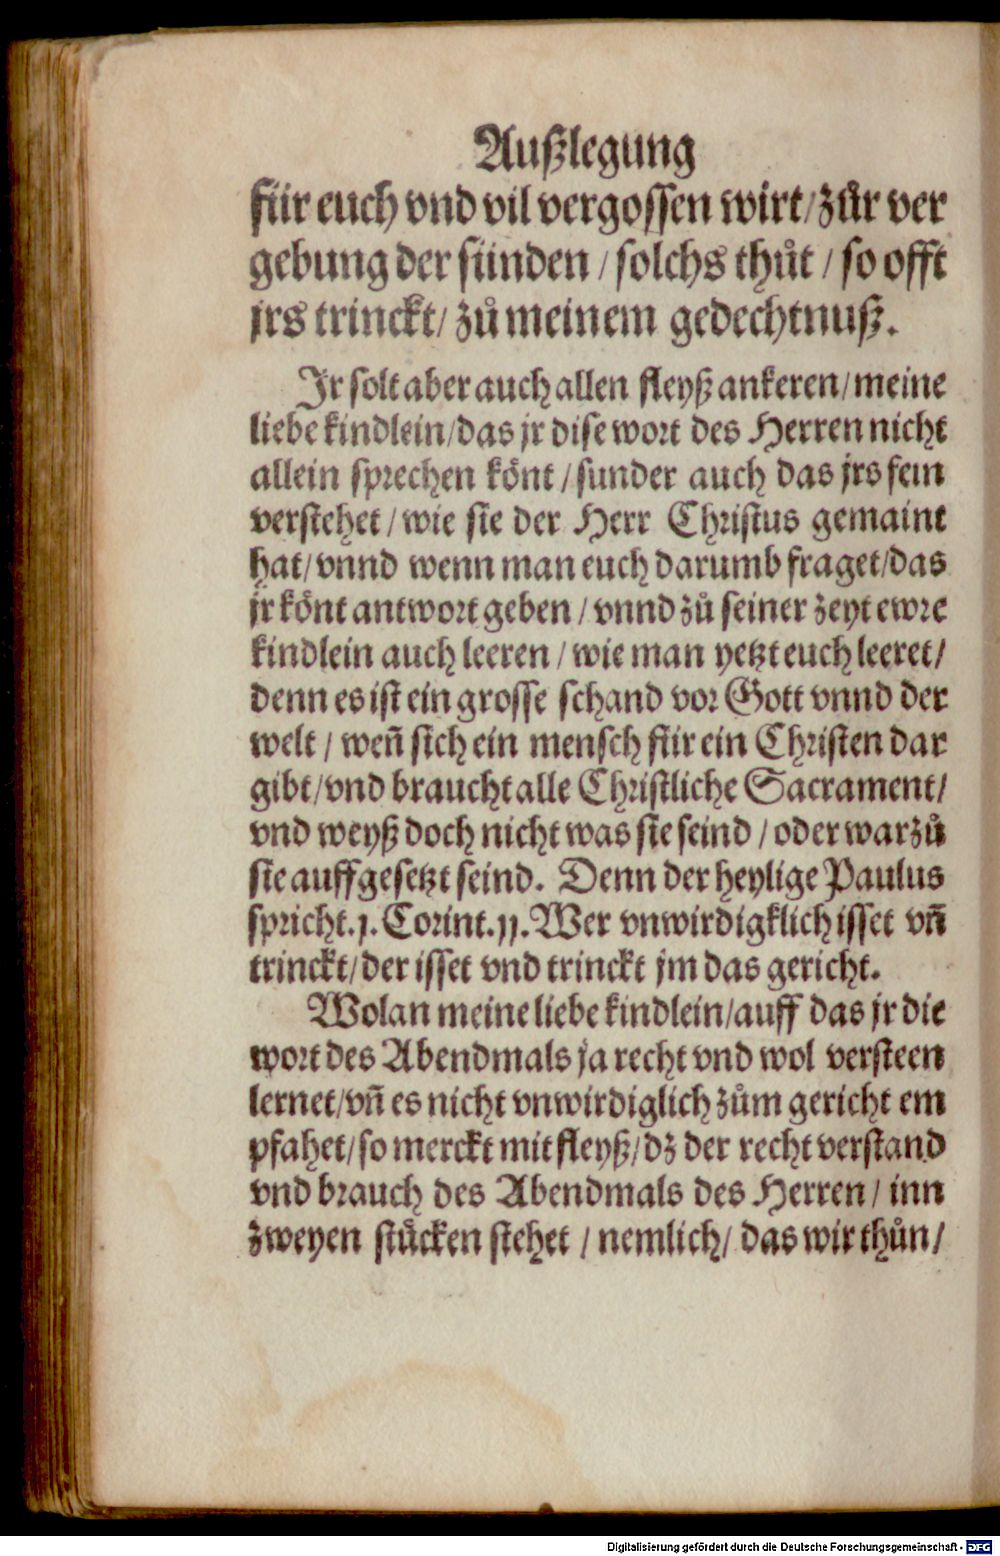 Außlegung
für euch vnd vil vergossen wirt/zůr ver
gebung der sünden / solchs thůt / so offt
jrs trinckt/ zů meinem gedechtnuß.
Jr solt aber auch allen fleyß ankeren/meine
liebe kindlein/das jr dise wort des Herren nicht
allein sprechen könt / sunder auch das jrs fein
verstehet / wie sie der Herr Christus gemaint
hat/ vnnd wenn man euch darumb fraget/das
jr könt antwort geben / vnnd zů seiner zeyt ewre
kindlein auch leeren / wie man yetzt euch leeret/
denn es ist ein grosse schand vor Gott vnnd der
welt / weñ sich ein mensch für ein Christen dar
gibt/vnd braucht alle Christliche Sacrament/
vnd weyß doch nicht was sie seind / oder warzů
sie auffgesetzt seind. Denn der heylige Paulus
spricht.j. Corint.jj. Wer vnwirdigklich isset vñ
trinckt/der isset vnd trinckt jm das gericht.
Wolan meine liebe kindlein/auff das jr die
wort des Abendmals ja recht vnd wol versteen
lernet/vñ es nicht vnwirdiglich zům gericht em
pfahet/so merckt mit fleyß/dz der recht verstand
vnd brauch des Abendmals des Herren / inn
zweyen stücken stehet / nemlich/ das wir thůn/
Digitalisierung gefördert durch die Deutsche Forschungsgemeinschaft - DFG